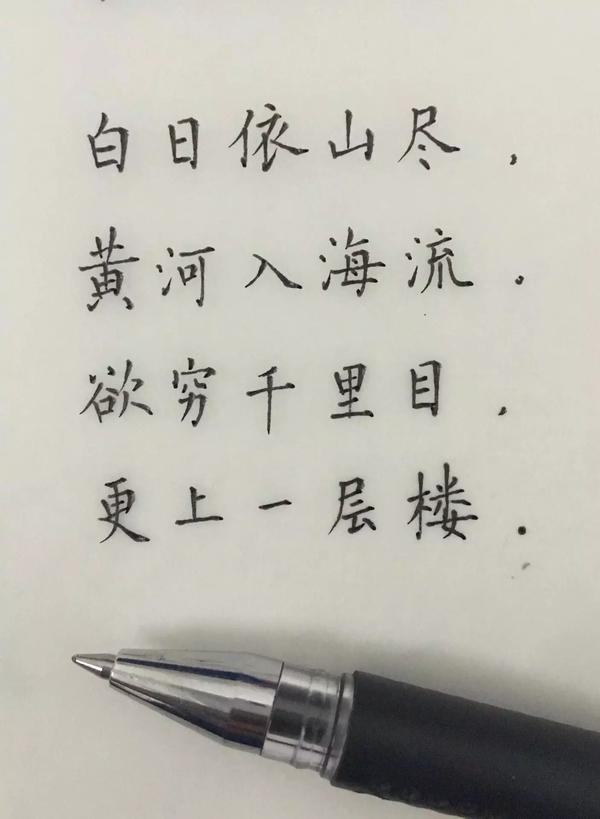 白日依山尽，
黄河入海流。
欲穷千里目，
更上一层楼.